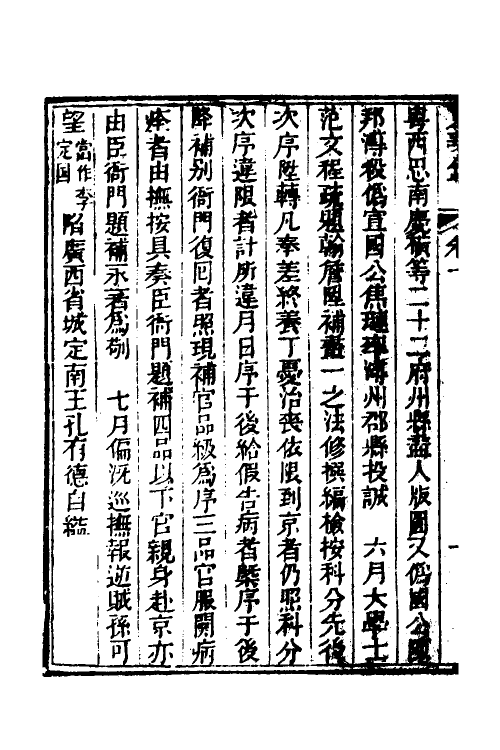 粵西思南慶橫等二十二府州縣盡入版圖又僞國公
邦溥殺僞宜國公焦璉率潯州郡縣投誠　六月大學士
范文程疏題翰詹陞補畫一之法修撰編檢按科分先後
次序陞轉凡奉差終養丁憂治喪依限到京者仍照科分
次序違限者計所違月日序于後給假告病者槩序于後
降補别衙門復回者照現補官品級爲序三品官服闋病
痊者由撫按具奏臣衙門題補四品以下官親身赴京亦
由臣衙門題補永著爲例　七月偏沅巡撫報逆賊孫可
望當作李定国陷廣西省城定南王孔有德自縊
卷一